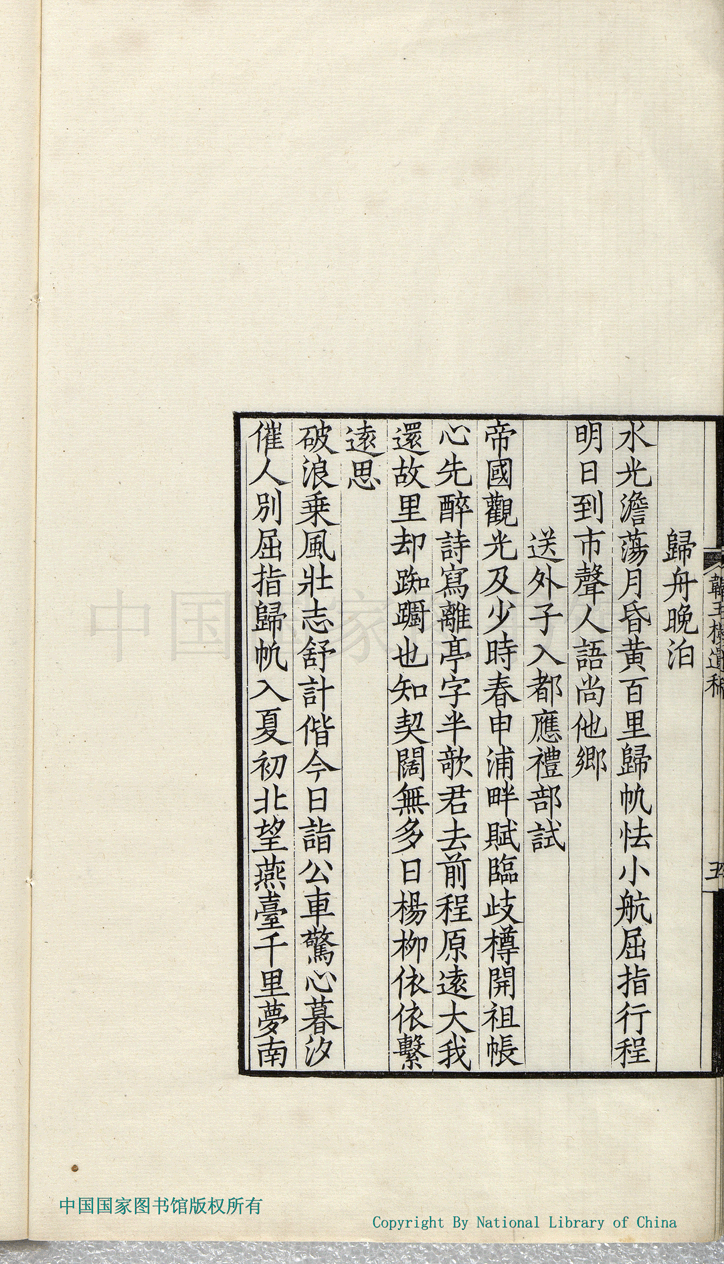 歸舟晚泊
水光澹蕩月昏黃百里歸帆怯小航屈指行程
明日到市聲人語尚他鄉
送外子入都應禮部試
帝國觀光及少時春申浦畔賦臨歧樽開祖帳
心先醉詩寫離亭字半欹君去前程原遠大我
還故里却踟躕也知契闊無多日楊柳依依繫
遠思
破浪乘風壯志舒計偕今日詣公車驚心暮汐
催人別屈指歸帆入夏初北望燕臺千里夢南
韞玉樓遺稿
五
中国国家图书馆
中国国家图书馆版权所有
Copyright By National Library of China